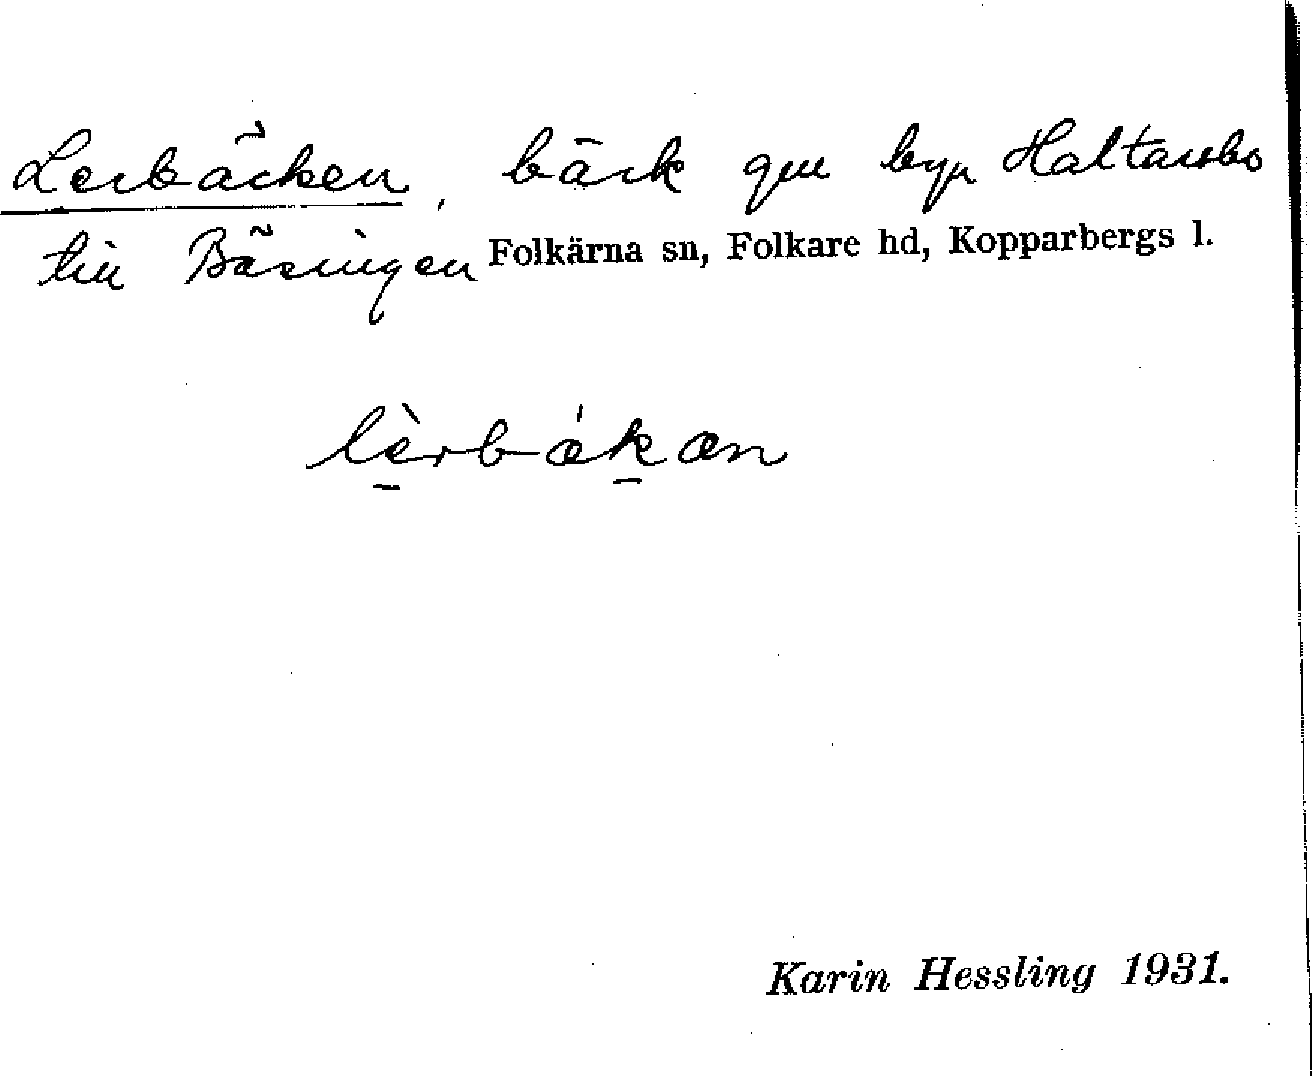 Lerbäcken, bäck gm byn Haltarsbo
till Bäsingen Folkärna sn, Folkare hd, Kopparbergs l.
lèrbǽkæn
Karin Hessling 1931.